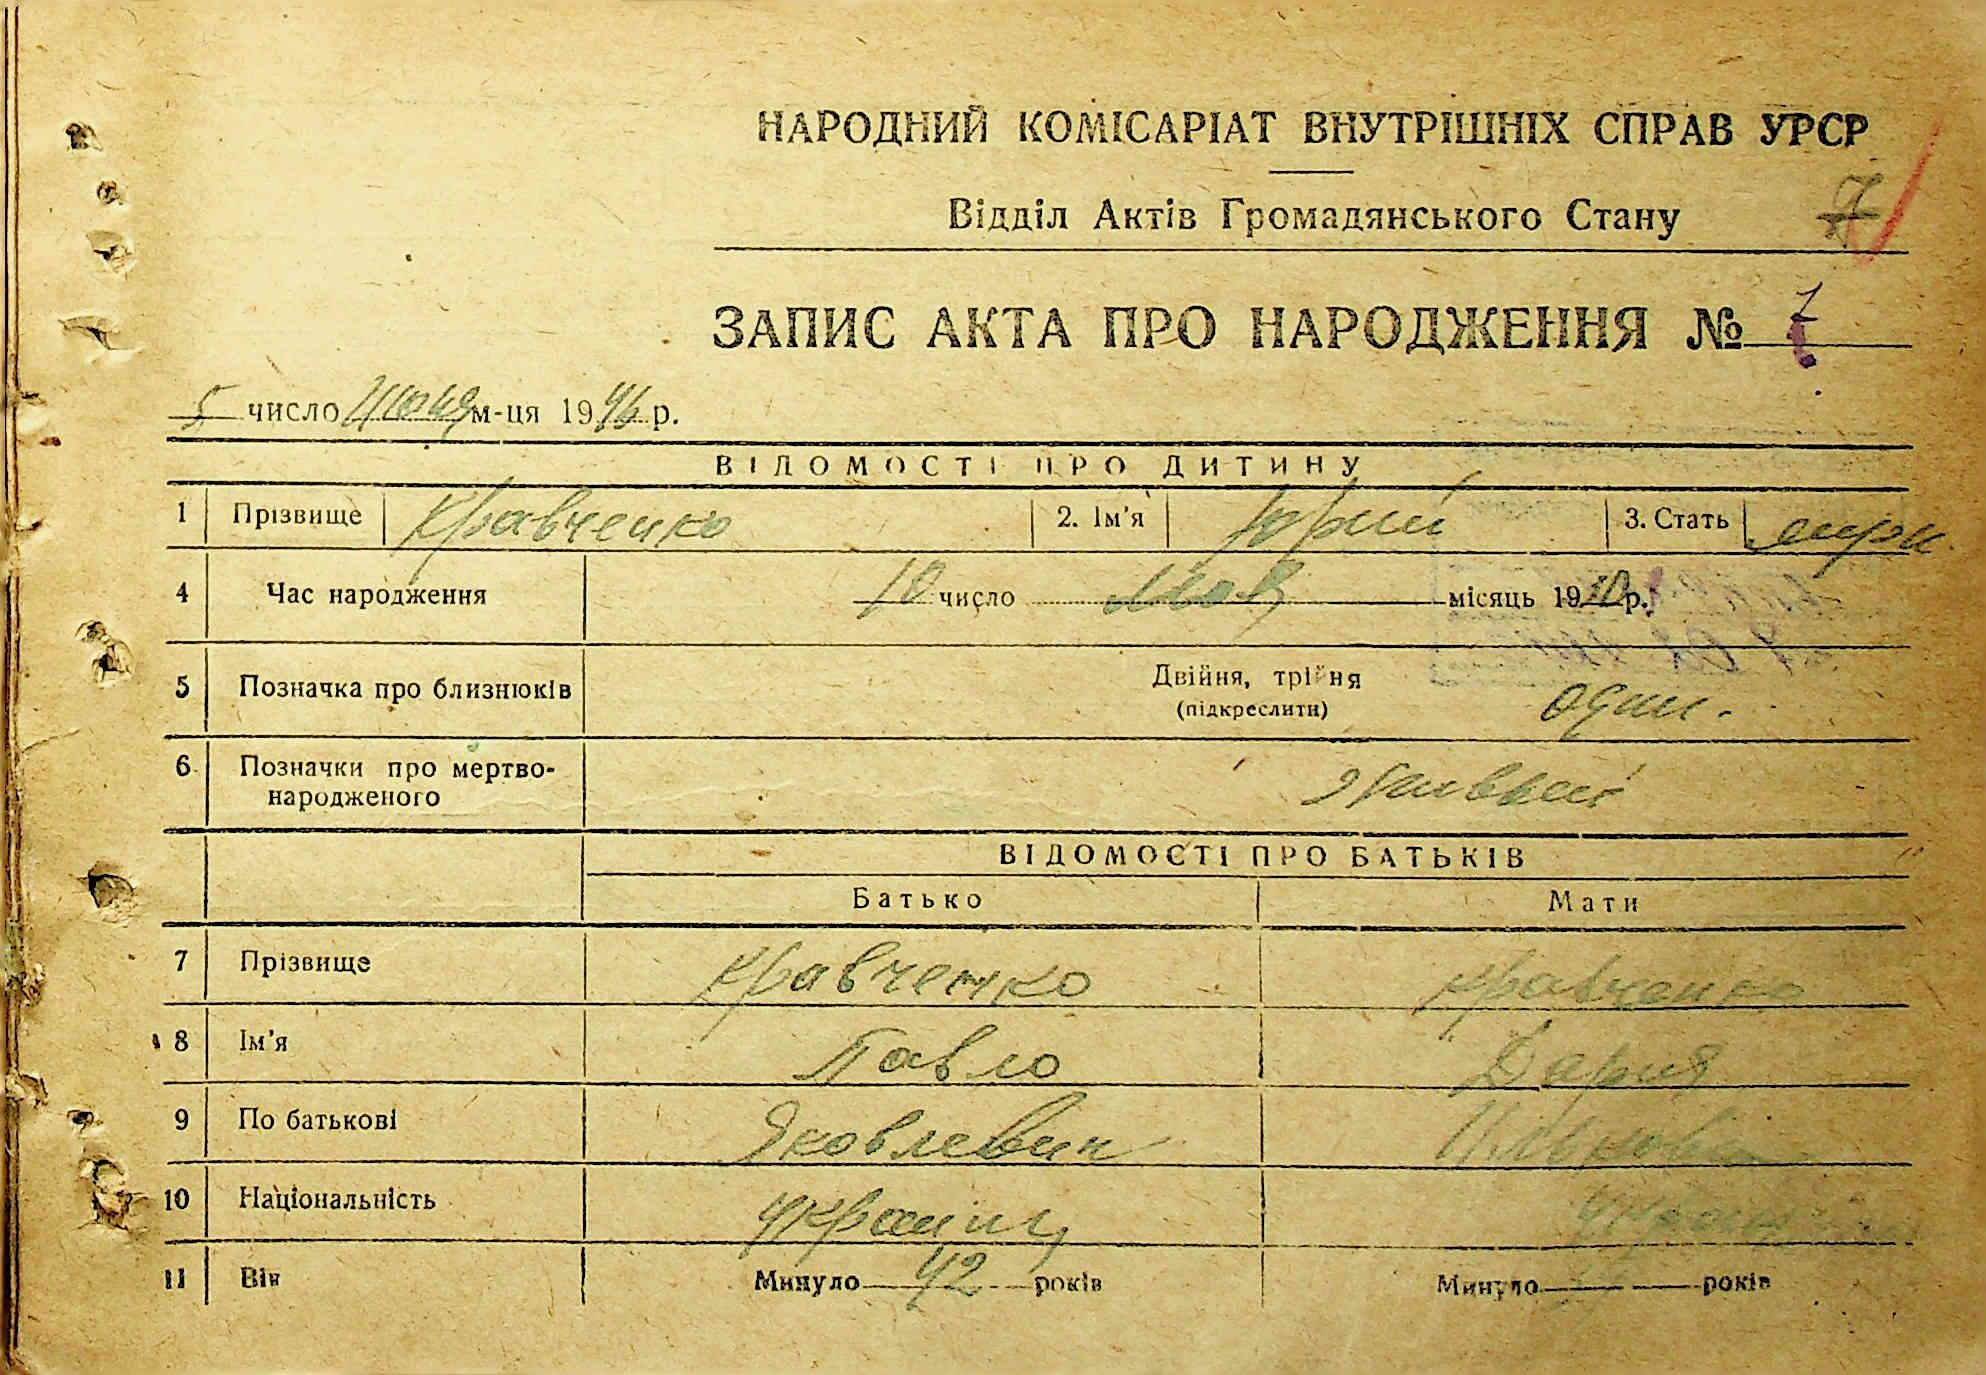 НАРОДНИЙ КОМІСАРІАТ ВНУТРІШНІХ СПРАВ УРСР
Відділ Актів Громадянського Стану 7
ЗАПИС АКТА ПРО НАРОДЖЕННЯ № 7
5 число июня м-ця 1946 р.
ВІДОМОСТІ ПРО ДИТИНУ
1 Прізвище Кравченко 2. Ім'я Юрий 3. Стать
4 Час народження 10 число мая місяць 1910 р.
5 Позначка про близнюків Двійня, трійня один.
(підкреслити)
6 Позначки про мертво-
народженого живый
ВІДОМОСТІ ПРО БАТЬКІВ
Батько Мати
7 Прізвище Кравченко Кравченко
8 Ім'я Павло Дария
9 По батькові Яковлевич
10 Національність украинц
11 Вік Минуло 42 років Минуло років